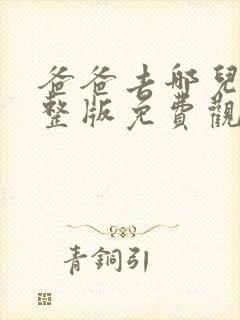 爸爸去哪兒
整版免費觀
青銅引